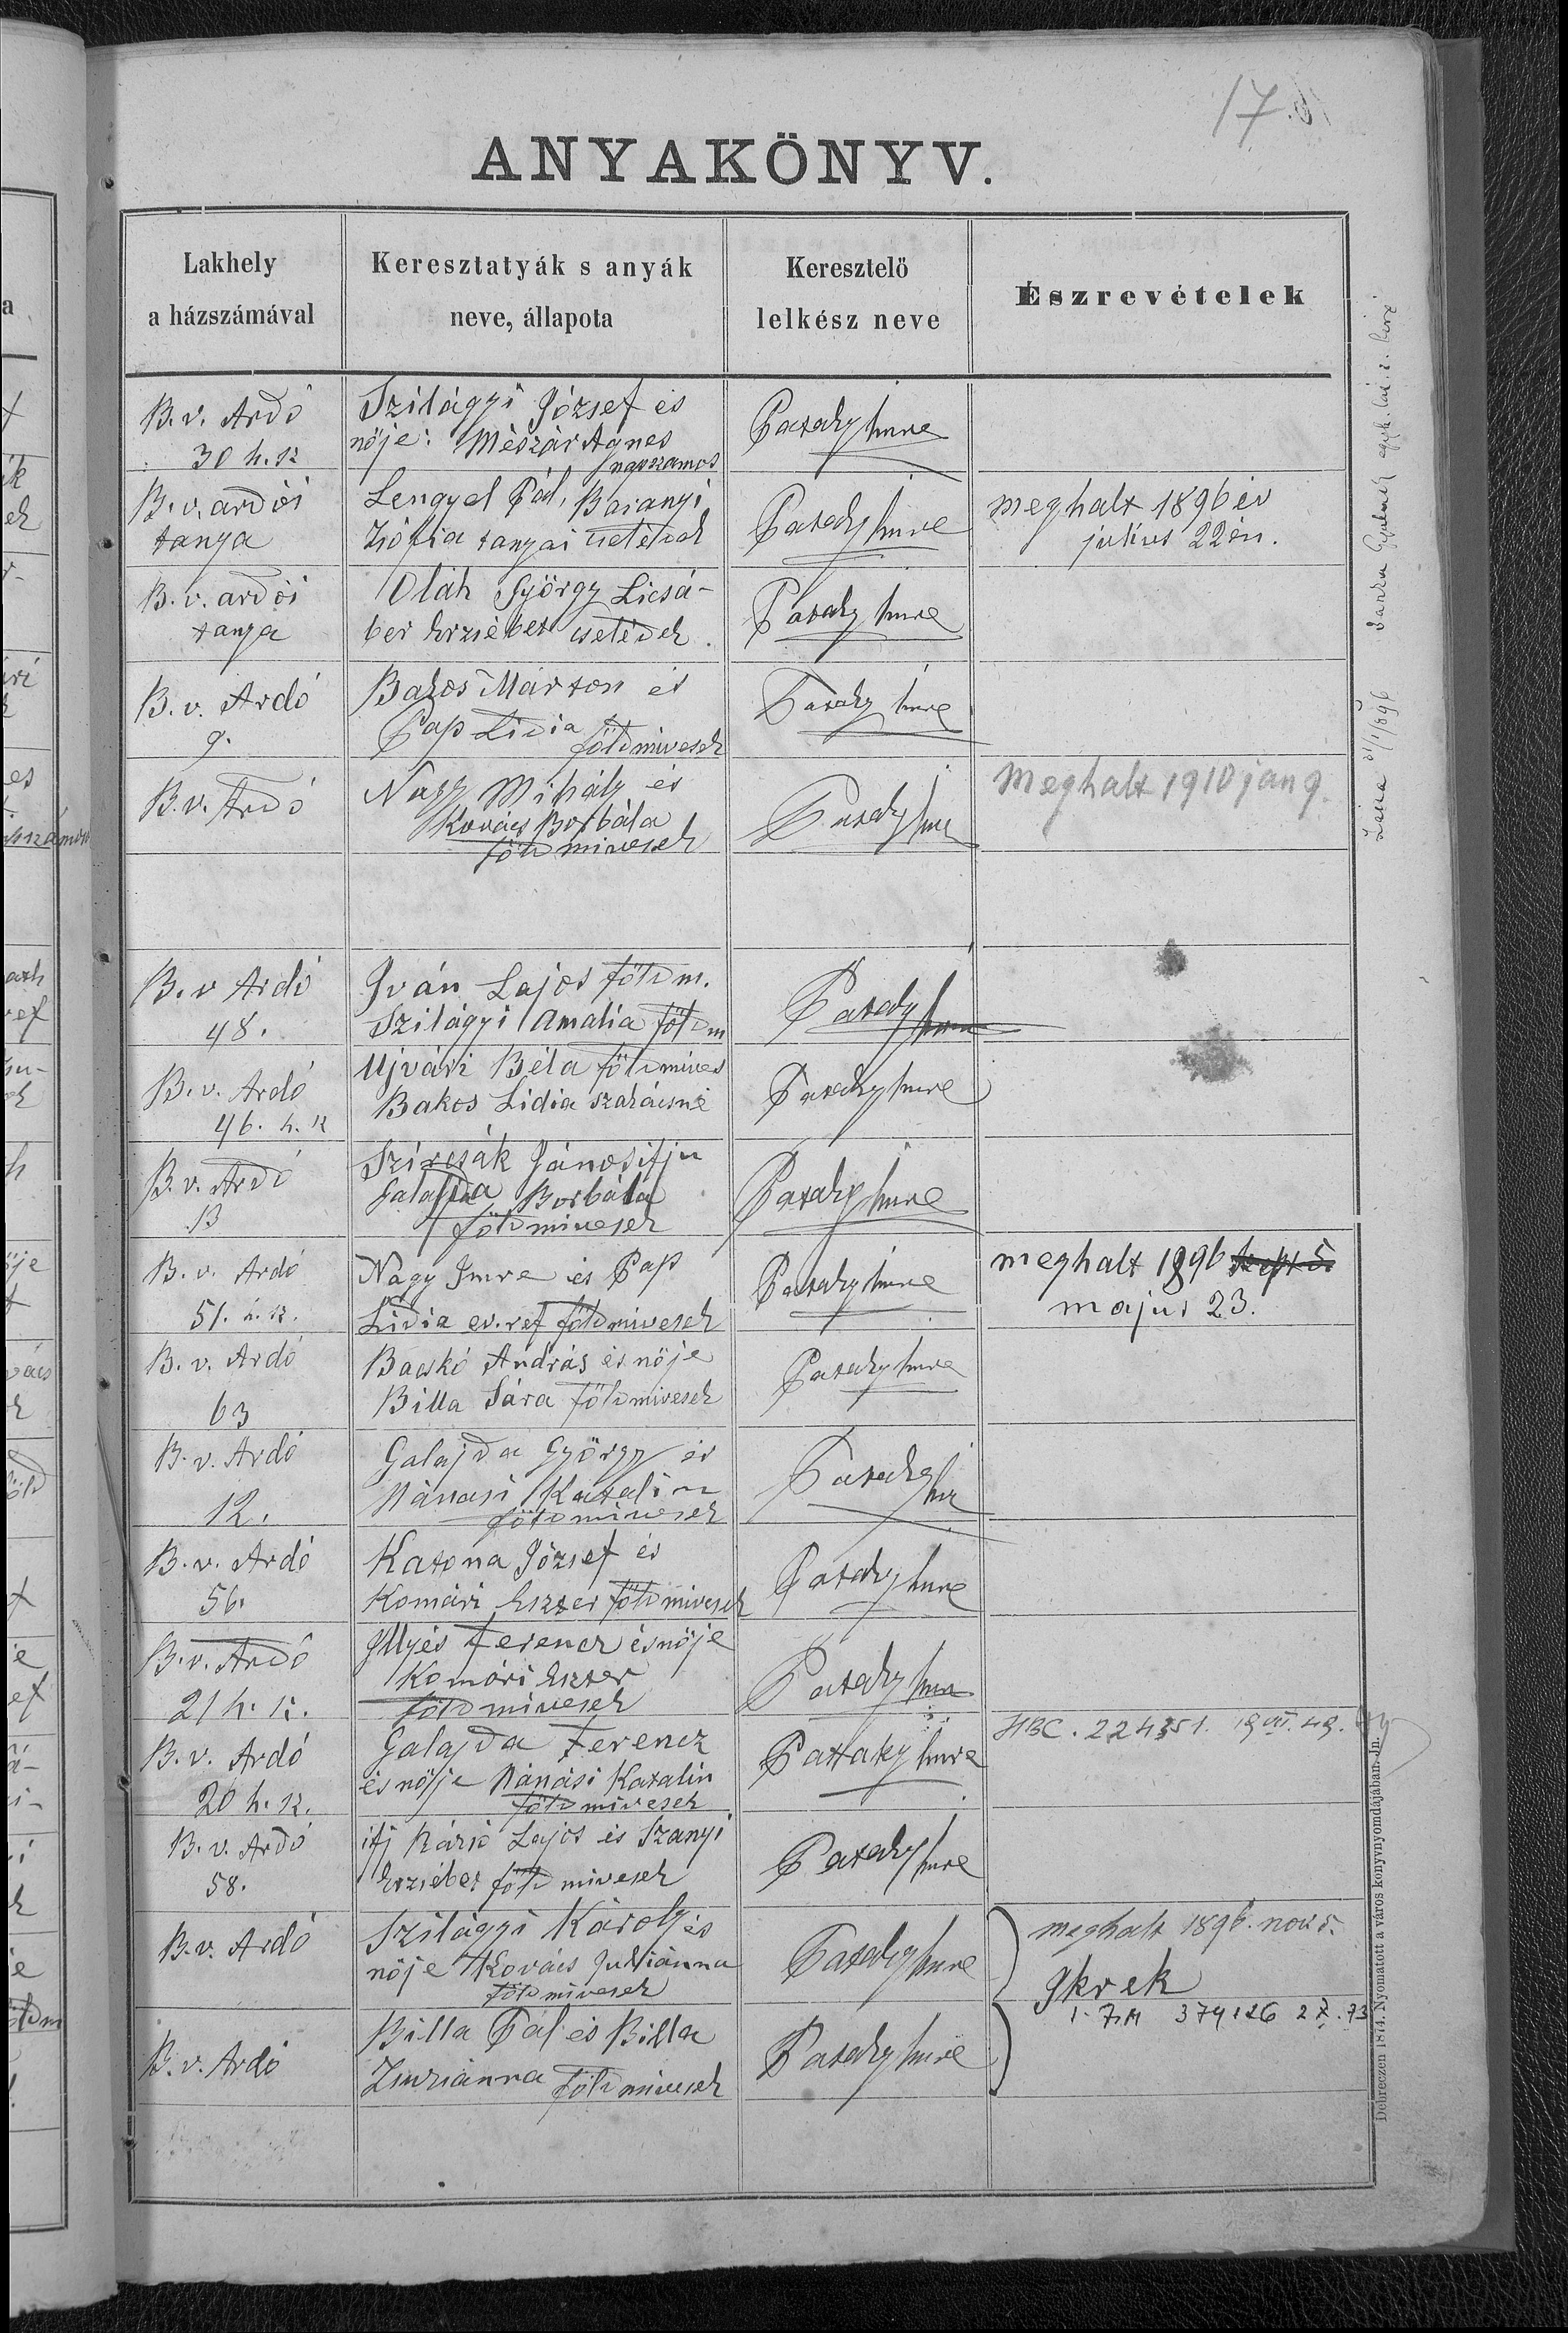 17.
ANYAKÖNYV.
Lakhely
a házszámával
Keresztatyák s anyák
neve, állapota
Keresztelö
lelkész neve
Észrevételek
B. v. Ardó
30 h. sz
Szilágyi József és
nöje: Mészár Agnes
napszamos
Pataky Imre
B. v. ardói
tanya
Lengyel Pál, Baranyi
Zsófia tanyai cselédek
Pataky Imre
meghalt 1896 év
julius 22én.
B. v. ardói
tanya
Oláh György Licsá-
ber Erzsébet cselédek
Pataky Imre
B. v. Ardó
9.
Bakos Márton és
Pap Lidia
földmivesek
Pataky Imre
B. v. Ardó
Nagy Mihály és
Kovács Borbála
földmivesek
Pataky Imre
Meghalt 1910 jan 9.
B. v Ardó
48.
Iván Lajos földm.
Szilágyi Amalia földm
Pataky Imre
B. v. Ardó
46. h. sz
Ujvári Béla földmives
Bakos Lidia szakácsné
Pataky Imre
B. v. Ardó
13
János ifju
Galajda Borbála
földmivesek
Pataky Imre
B. v. Ardó
51. h. sz.
Nagy Imre és Pap
Lidia ev. ref földmivesek
Pataky Imre
meghalt 1896 szept 5.
majus 23.
B. v. Ardó
63
Bacskó András és nöje
Billa Sára földmivesek
Pataky Imre
B. v. Ardó
12.
Galajda György és
Nánási Katalin
földmivesek
Pataky Imre
B. v. Ardó
56.
Katona József és
Komári Eszter földmivesek
Pataky Imre
B. v. Ardó
21 h. sz.
Illyés Ferencz és nöje
Komóri Eszter
földmivesek
Pataky Imre
B. v. Ardó
20 h. sz.
Galajda Ferencz
és nöje Nánási Katalin
földmivesek
Pataky Imre
HBC. 224351. 19 VII. 49.
B. v. Ardó
58.
ifj Lajos és Szanyi
Erzsébet földmivesek
Pataky Imre
B. v. Ardó
Szilágyi Károly és
nöje Kovács Julliánna
földmivesek
Pataky Imre
meghalt 1896. nov 5.
Ikrek
374126 2 X. 73
B. v. Ardó
Billa Pál és Billa
Zsuzsánna földmivesek
Pataky Imre
Debreczen 1874. Nyomatott a város könyvnyomdájában.